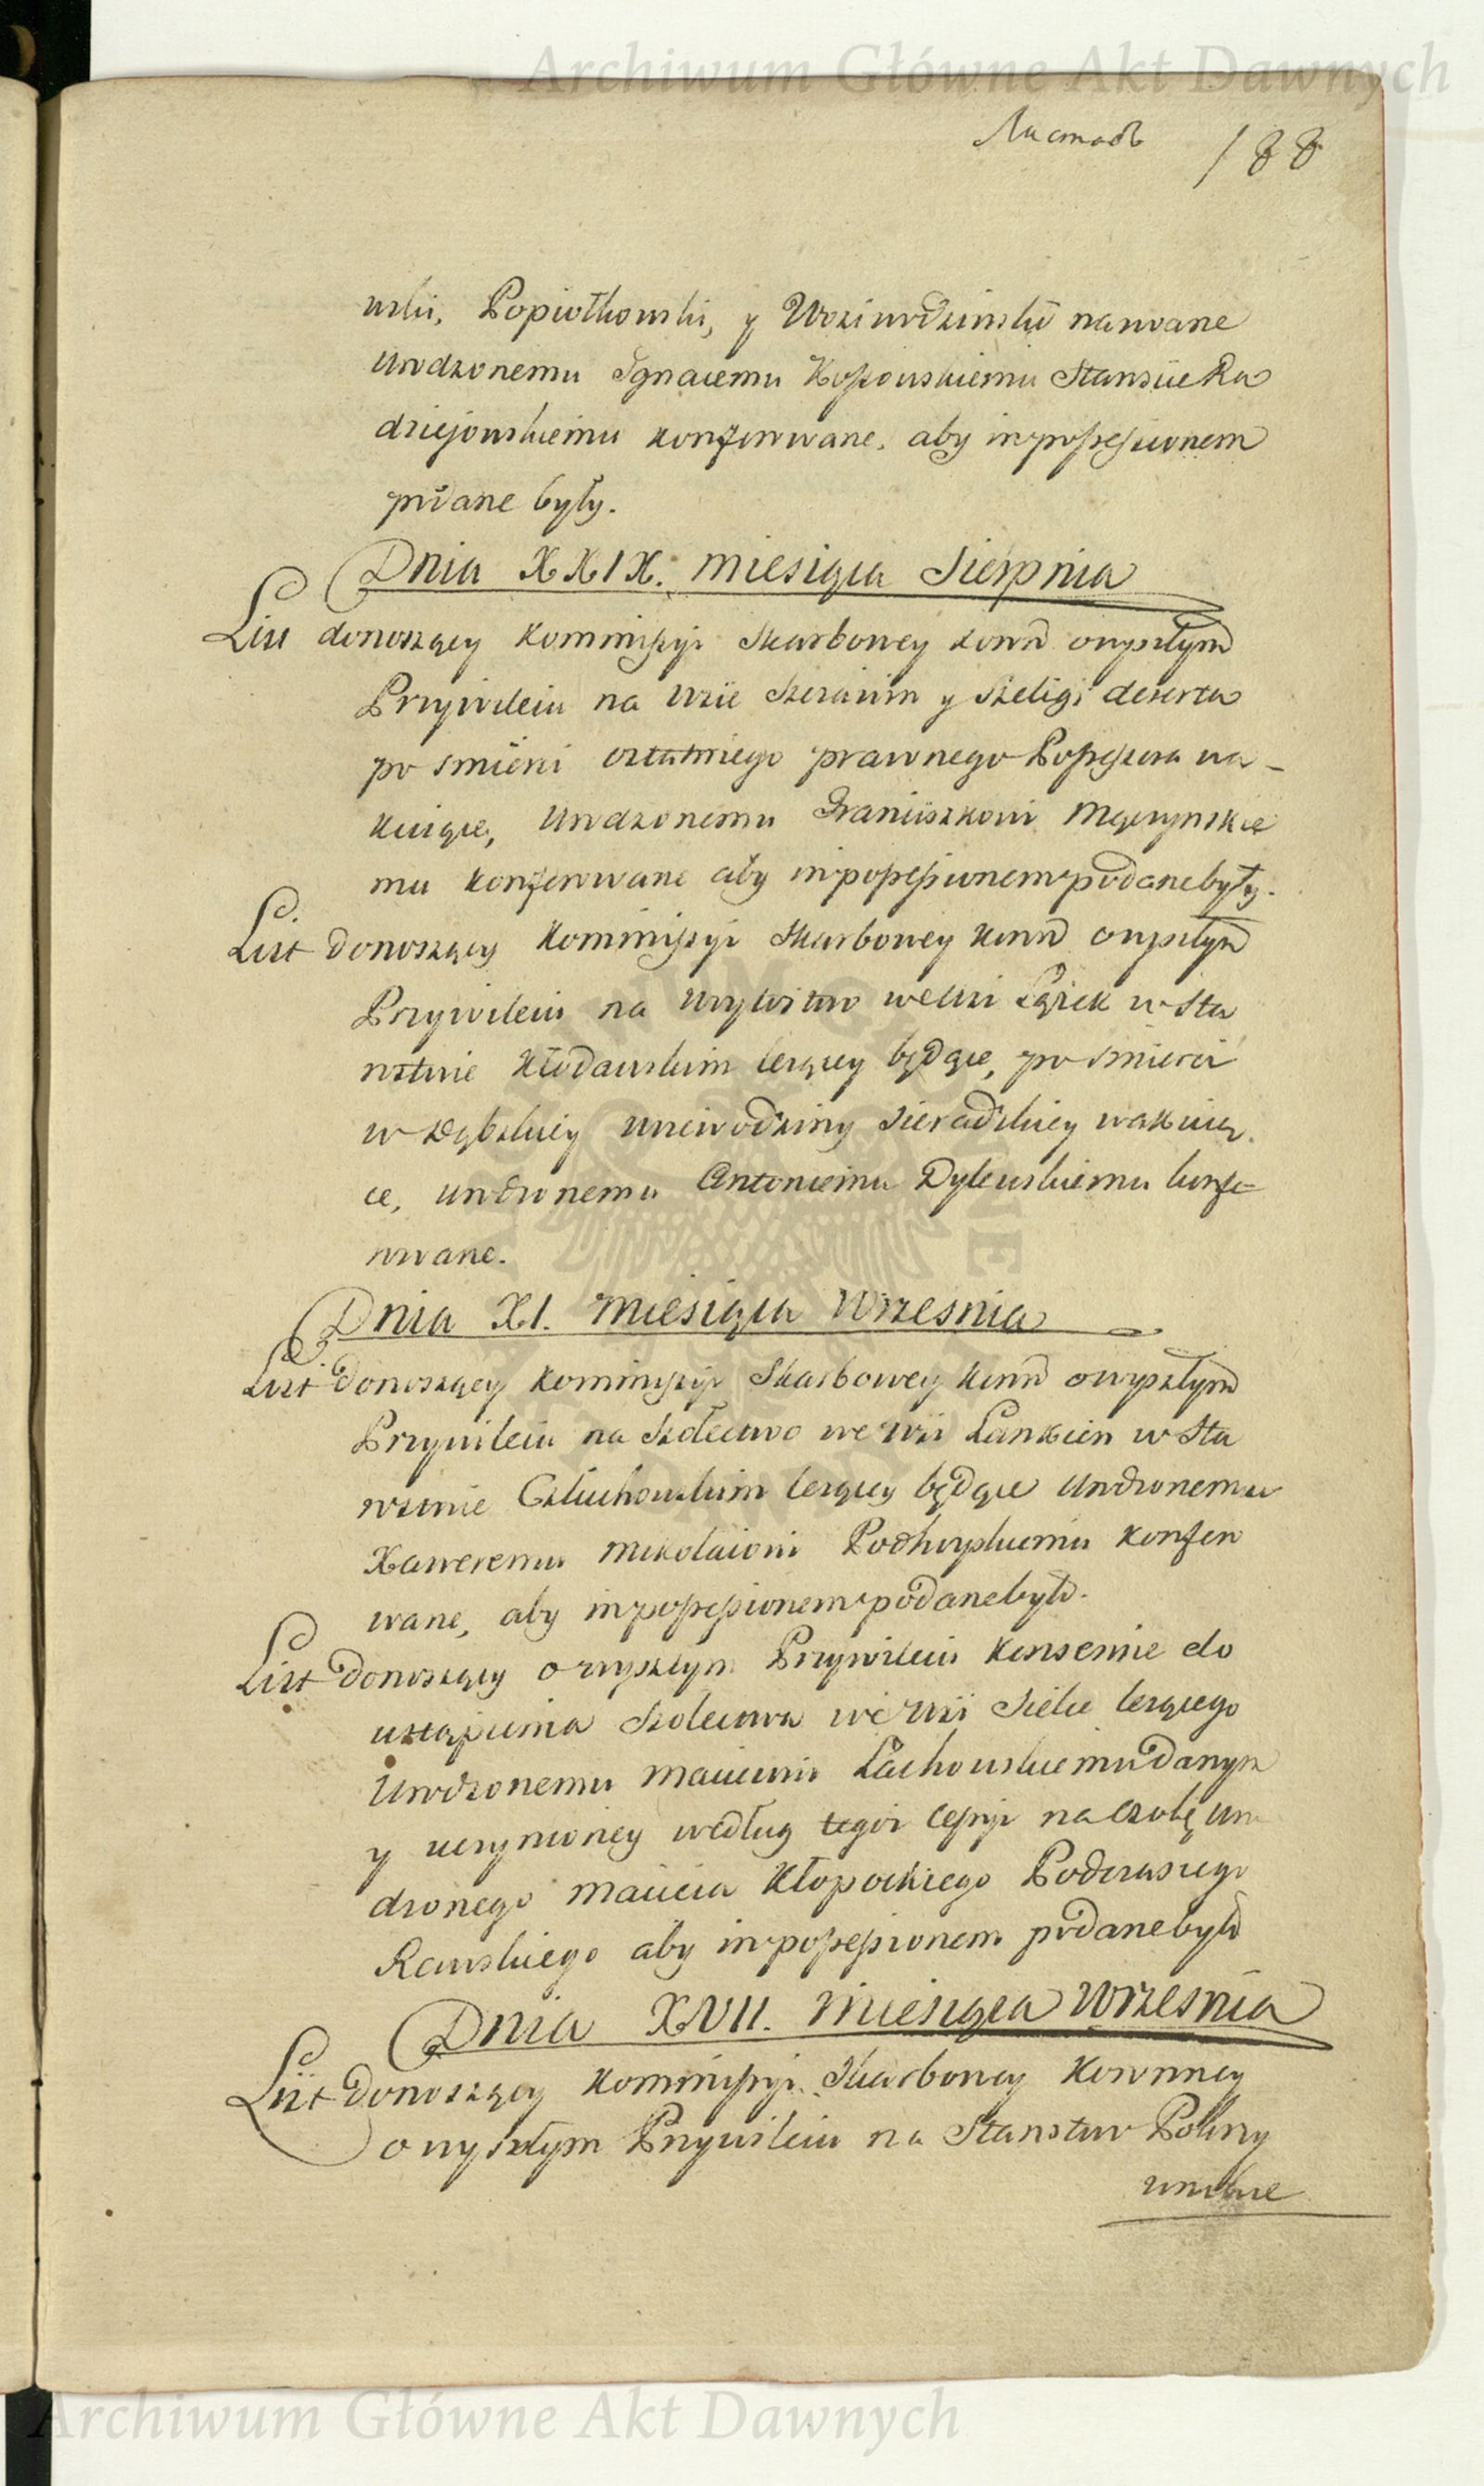 Archiwum Główne Akt Dawnych
Листовъ 188
wski, Popiołkowski, y nazwane
Urodzonemu Ignacemu Stanście Ra
dziejowskiemu konferowane, aby in possessionem
podane były.
Dnia XXIX. Miesiąca Sierpnia
List donoszący Kommissyi Skarbowey Koron o wyszłym
Przywileiu na wsie y Szeligi deserta
po śmierci ostatniego prawnego Possessora wa-
kuiące, Urodzonemu Franciszkowi Męcynskie
mu konferowane aby in possessionem podane były.
List donoszący Kommissyi Skarbowey Koron o wyszłym
Przywileiu na Wybostwo we wsi Łążek w Sta
rostwie Kłodawskim leżącey będące, po śmierci
w Dąbskiey Urodziny Sieradzkiey wakuią-
ce, Urodzonemu Antoniemu Dylewskiemu konfe
rowane.
Dnia XI. Miesiąca Wrzesnia
List donoszący Kommissyi Skarbowey Koron o wyszłym
Przywileiu na Szołectwo we wsi Lanken w Sta
rostwie Człuchowskim leżącey będące Urodzonemu
Xaweremu Mikołaiowi konfero
wane, aby in possessionem podane było.
List donoszący o wyszłym Przywileiu Konsensie do
ustąpienia Szolectwa we wsi Sielce leżącego
Urodzonemu Macieiowi Lachowskiemu danym
y uczynioney według tegoż cessyi na osobę Uro
dzonego Macieia Kłopockiego Podczaszego
Rawskiego aby in possessionem podane było
Dnia XVII. Miesiąca Wrzesnia
List donoszący Kommissyi Skarbowey Koronney
o wyszłym Przywileiu na Starostwo
Archiwum Główne Akt Dawnych